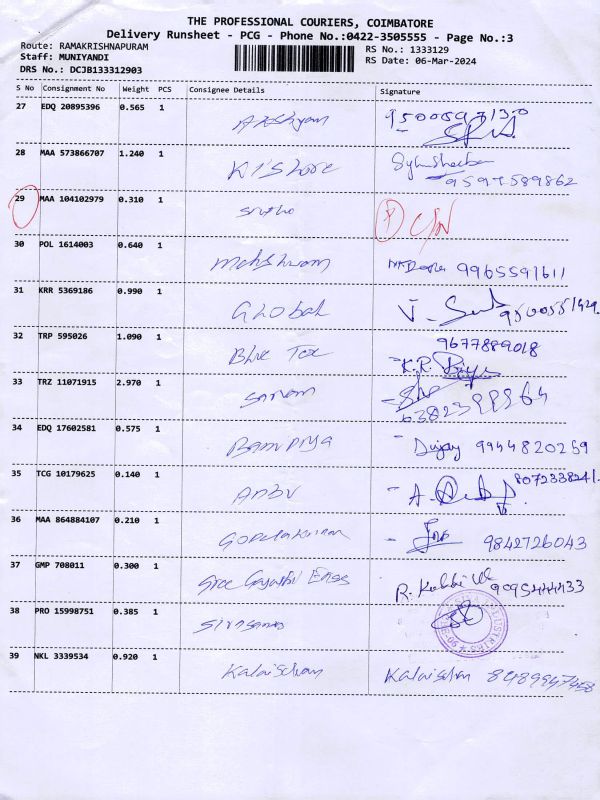 THE PROFESSIONAL COURIERS, COIMBATORE
Delivery Runsheet - PCG - Phone No.:0422-3505555 - Page No.:3
Route: RAMAKRISHNAPURAM
Staff: MUNIYANDI
DRS No.: DCJB133312903
RS No.: 1333129
RS Date: 06-Mar-2024
S No Consignment No Weight PCS Consignee Details Signature
27 EDQ 20895396 0.565 1
28 MAA 573866707 1.240 1 Kishore
9597589862
29 MAA 104102979 0.310 1
30 POL 1614003 0.640 1 9965591611
31 KRR 5369186 0.990 1 Global
32 TRP 595026 1.090 1 Blue Tex 9677889018
K.R.
33 TRZ 11071915 2.970 1
6382399864
34 EDQ 17602581 0.575 1 9944820259
35 TCG 10179625 0.140 1 Anbu 8072338241
36 MAA 864884107 0.210 1 9842726043
37 GMP 708011 0.300 1 Sree Gayathri
38 PRO 15998751 0.385 1
39 NKL 3339534 0.920 1